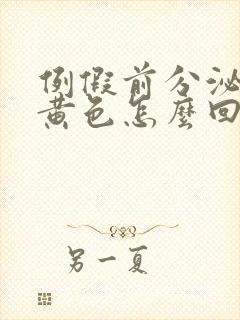 例假前分泌
黄色怎麼回
另一夏